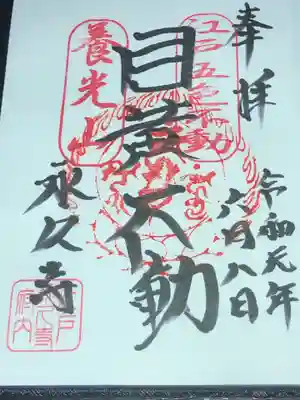 奉拝
令和元年
六月八日
江戸五色不動
目黄不動
養光山
永久寺